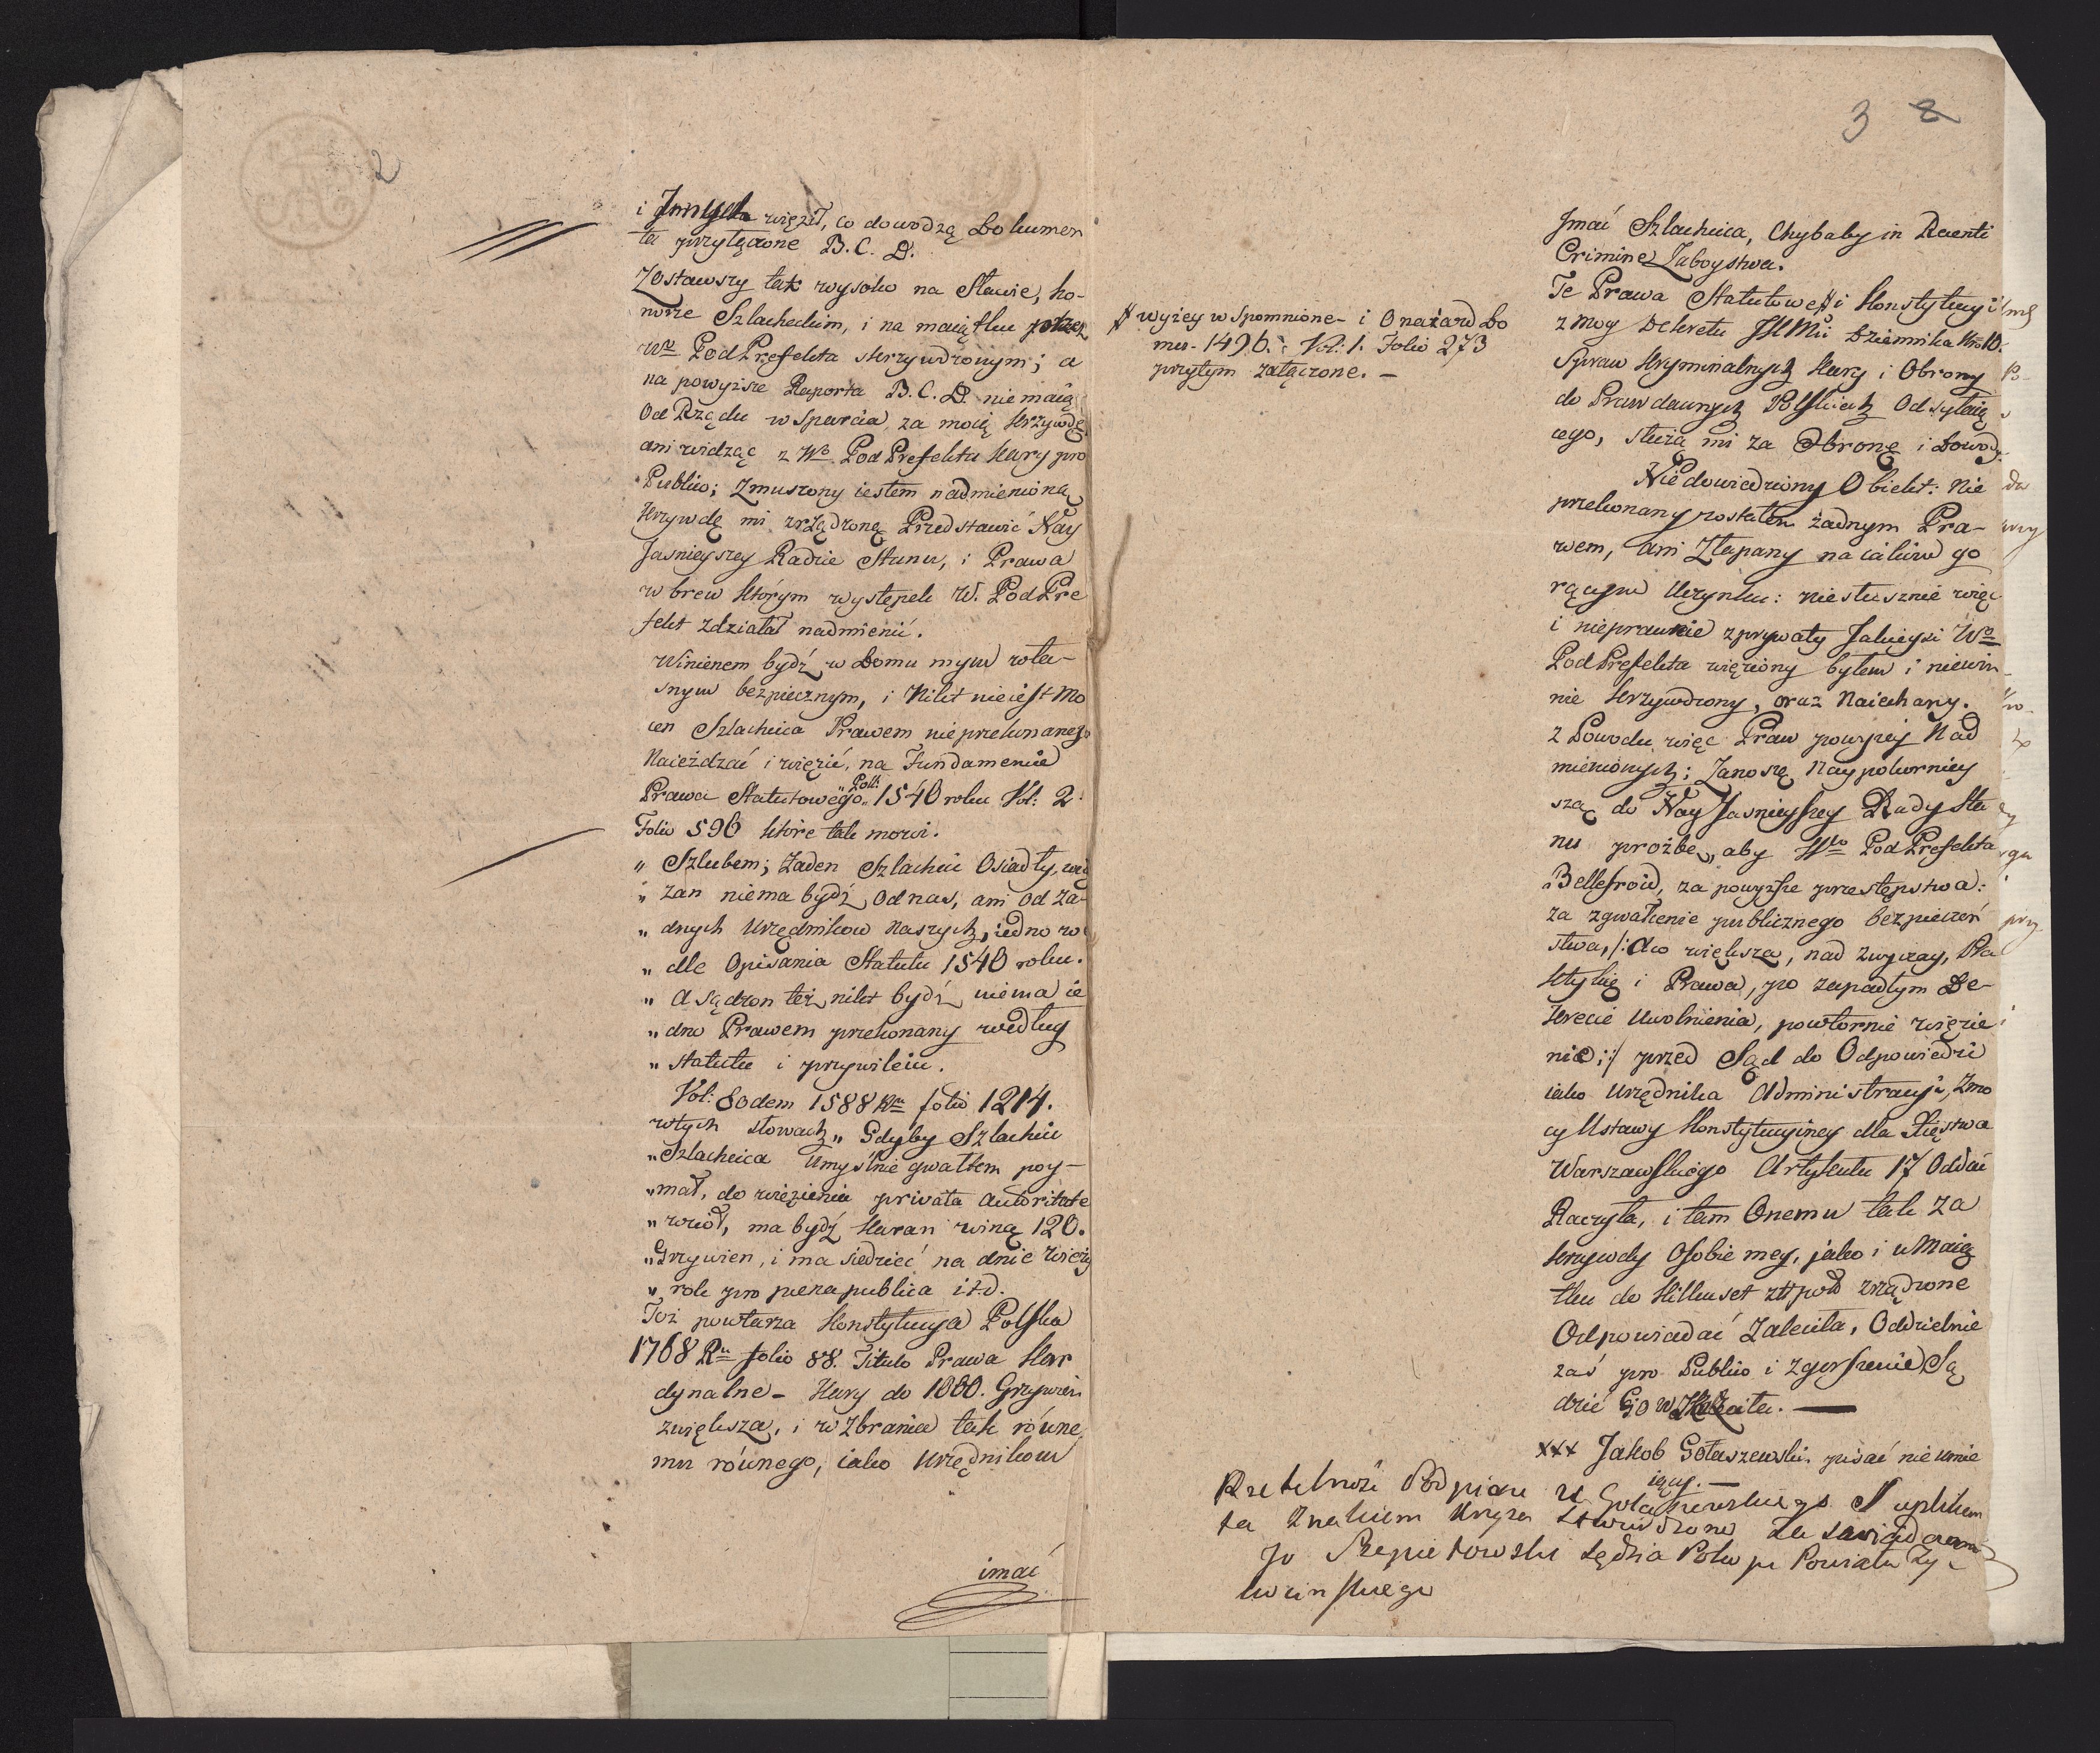 2
i Innych więził, co dowodzą Dokumen
ta przyłączone B. C. D.
Zostawszy tak wysoko na Sławie, ho-
norze Szlacheckim, i na maiątku przez
Wo PodPrefekta skrzywdzonym; a
na powyższe Raporta B. C. D. niemaiąc
Od Rządu wsparcia, za moią krzywdę,
ani widząc z Wo PodPrefekta kary pro
Publico; Zmuszony iestem nadmienioną
krzywdę mi zrządzoną Przedstawić Nay
Jasnieyszey Radzie Stanu, i Prawa
wbrew którym występek W. PodPre
fekt zdziałał nadmienić.
Winienem bydź w Domu mym wła-
snym bezpiecznym, i Nikt nieiest Mo
cen Szlachcica Prawem nieprzekonanego
Naieżdzać i więzić, na Fundamencie
Prawa Statutowego „Pol: 1540 roku Vol: 2.
Folio 596 które tak mowi.
„ Szlubem; Żaden Szlachcic Osiadły, wię
„ zan niema bydź, Od nas, ani od ża-
„ dnych Urzędnikow naszych, iedno we
„ dle Opisania Statutu 1540 roku.
„ A sądzon też nikt bydź niema ie
„ dno Prawem przekonany według
„ statutu i przywileiu.
Vol: Eodem 1588 Ru folio 1214.
wtych słowach „ Gdyby Szlachcic
„ Szlachcica Umyślnie gwałtem poy-
„ mał, do więzienia privata Autoritate
„ wziół, ma bydź karan winą 120.
„ Grzywien, i ma siedzieć na dnie wieży
„ rok pro pena publica itd.
Toż powtarza Konstytucya Polska
1768 Ru folio 88. Titulo Prawa Kar
dynalne - Kary do 1000. Grzywien
zwiększa, i wzbrania tak równe
mu równego, iako Urzędnikom
imać
3 8
# wyżey wspomnione - i Onażard Do
mus - 1496. Vol: 1. Folio 273
przytym załączone. -
Jmać Szlachcica, Chybaby in Recenti
Crimine Zaboystwa.
Te Prawa Statutowe # i Konstytucyi
z mocy Dekretu JKMci Dziennika Nro 10.
Spraw kryminalnych kary i Obrony
do Praw dawnych Polskich Odsyłaią
cego, służą mi za Obronę i Dowody.
Niedowiedziony Obiekt: nie
przekonany zostałem żadnym Pra-
wem, ani Złapany na iakim go
rącym Uczynku: niesłusznie więc
i nieprawnie z prywaty Jakieysi Wo
PodPrefekta więziony byłem i niewin
nie krzywdzony, oraz Naiechany.
z Powodu więc Praw powyżey Nad
mienionych: Zanoszę Naypokorniey
szą do Nay Jasnieyszey Rady Sta
nu prozbę, aby Wo PodPrefekta
Bellefroid, za powyższe przestępstwa:
za zgwałcenie publicznego bezpieczeń
stwa, /: a co większa, nad zwyczay, Pra
ktykę i Prawa, po zapadłym De-
krecie Uwolnienia, powtornie więzie
nie :/ przed Sąd do Odpowiedzi
iako Urzędnika Administracyi, Zmo
cy Ustawy Konstytucyiney dla Xięstwa
Warszawskiego Artykułu 17 Oddać
Raczyła, i tam Onemu tak za
krzywdy Osobie mey, jako i w Maią
tku do Kilkuset złtpols zrządzone
Odpowiadać Zaleciła, Oddzielnie
zaś pro Publico i zgorszenie Są
dzić Go w
xxx Jakob Gołaszewski pisać nie umie
iący. -
Rzetelność Podpisu U. Gołaszewskiego Suplikan
ta Znakiem krzyża stwierdzone zaswiadczam
Jo Szepietowski Sędzia Pokoju Powiatu Ty
kocinskiego